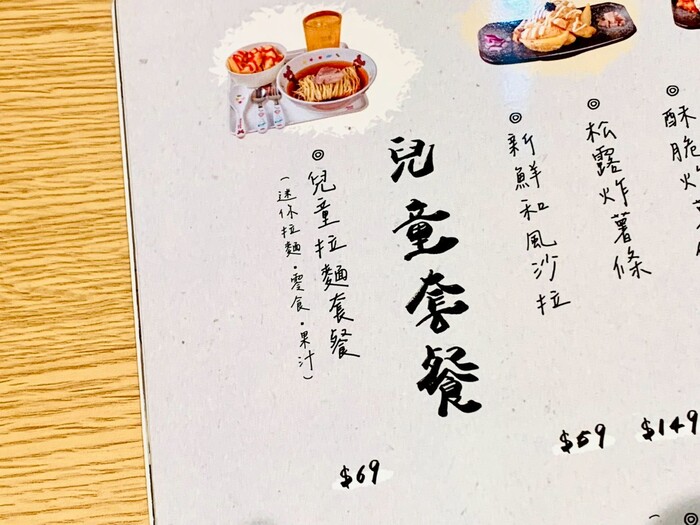 酥脆炸
松露炸薯條
$149
新鮮和風沙拉
$59
兒童套餐
◎兒童拉麵套餐
(迷你拉麵・零食・果汁)
$69